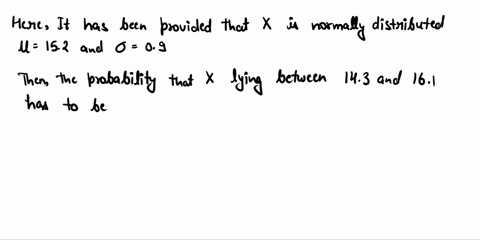 Here, It has been provided that X is normally distributed
μ = 15.2 and σ = 0.9
Then, the probability that X lying between 14.3 and 16.1
has to be